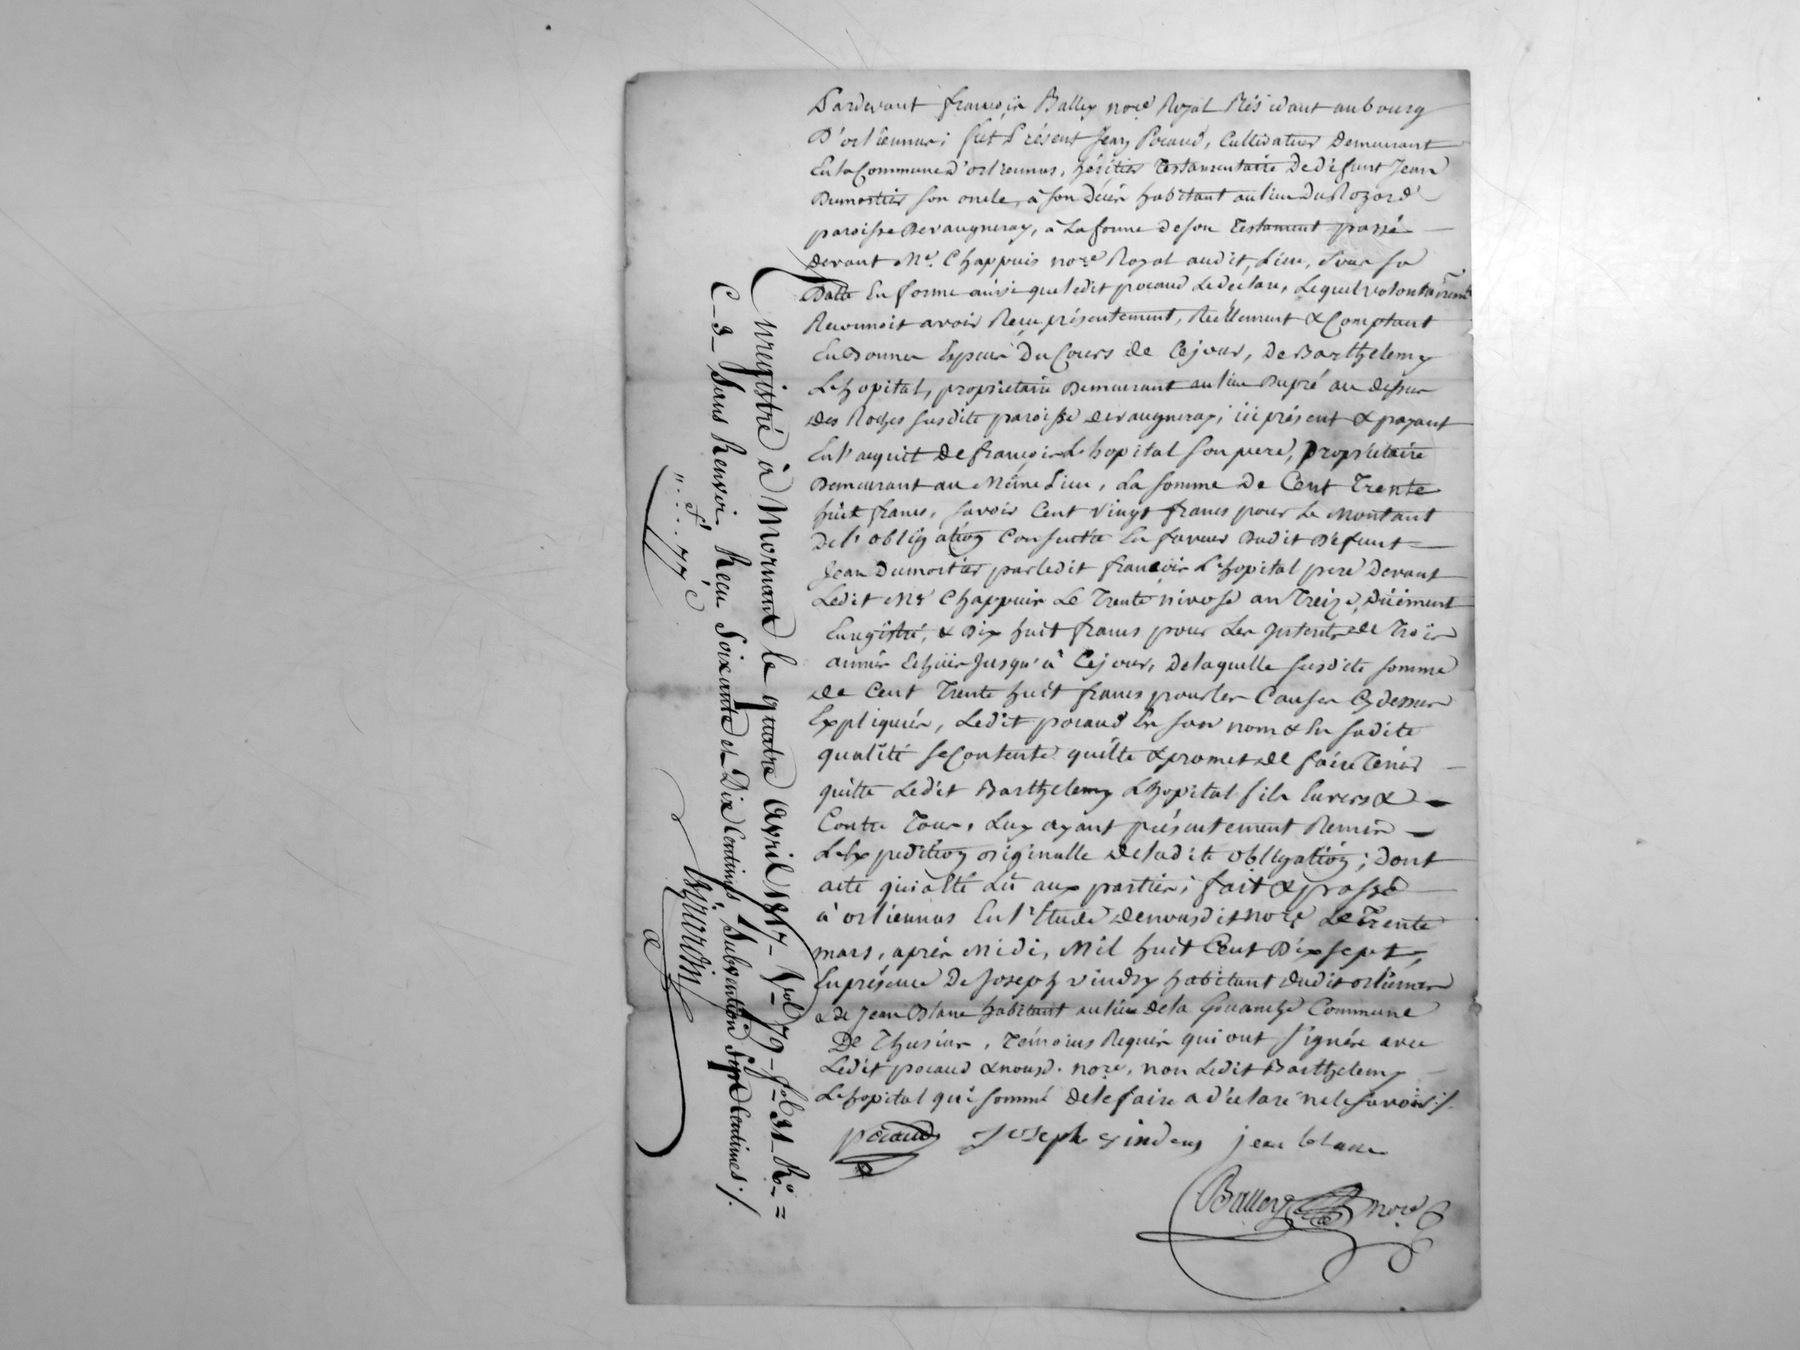 Pardevant françois Balley no.re Royal Résidant au bourg
D'orliennas; fut Présent Jean Pocaud, Cultivateur Demeurant
En la Commune d'orliennas, héritier Testamentaire De défunt Jean
Dumortier son oncle, à son décès habitant au lieu Du Rozard
paroisse De vaugneray, à La forme de son Testament passé
devant M.e Chappuis no.re Royal audit Lieu, Sous sa
Datte En forme ainsi que ledit pocaud Le déclare, Lequel volontairemt
Reconnoit avoir Reçu présentement, Réellement & Comptant
En Bonnes Espèces Du Cours de Cejour, De Barthelemy
L'hopital, propriétaire Demeurant au lieu Dupré au dessus
des Roches susdite paroisse de vaugneray; ici présent & payant
En l'acquitt De françois L'hopital son pere, propriétaire
Demeurant au Même Lieu, La somme De Cent Trente
huit francs, savoir Cent vingt francs pour Le Montant
De l'obligation Consentie En faveur Dudit Défunt
Jean Dumortier par ledit françois L'hopital pere Devant
Ledit M.e Chappuis Le Trente nivose an Treize, Dûement
Enregistré, & Dix huit francs pour Les Interets de Trois
années Echües Jusqu'à Cejour, De laquelle susdite somme
de Cent Trente huit francs pour les Causes Cy dessus
Expliquées, Ledit pocaud En son nom & En sadite
qualité se Contente quitte & promet de faire Tenir
quitte Ledit Barthelemy L'hopital fils Envers &
Contre Tous, Luy ayant présentement Remis
L'Expedition originalle de ladite obligation; Dont
acte qui a Eté Lû aux parties; fait & passé
à orliennas En l'Etude de nousdit no.re Le Trente
mars, après Midi, Mil huit Cent Dix sept,
En présence De Joseph vindry habitant dudit orliennas
& de Jean Blanc habitant au lieu de la Commune
De Thurins, Témoins Requis qui ont signés avec
Ledit pocaud & nousd. no.re, non Ledit Barthelemy
L'hopital qui sommé de le faire a déclaré ne le savoir ./.
pocaud Joseph vindry jean blanc
Balley no.re
Enregistré à Mornant le quatre Avril 1817 - Vol 79 - fol 31 R.o =
C - 3 - Sans Renvoi. Reçu Soixante et Dix Centimes, Subvention Sept Centimes ./.
" . f . 77 c
Girardin